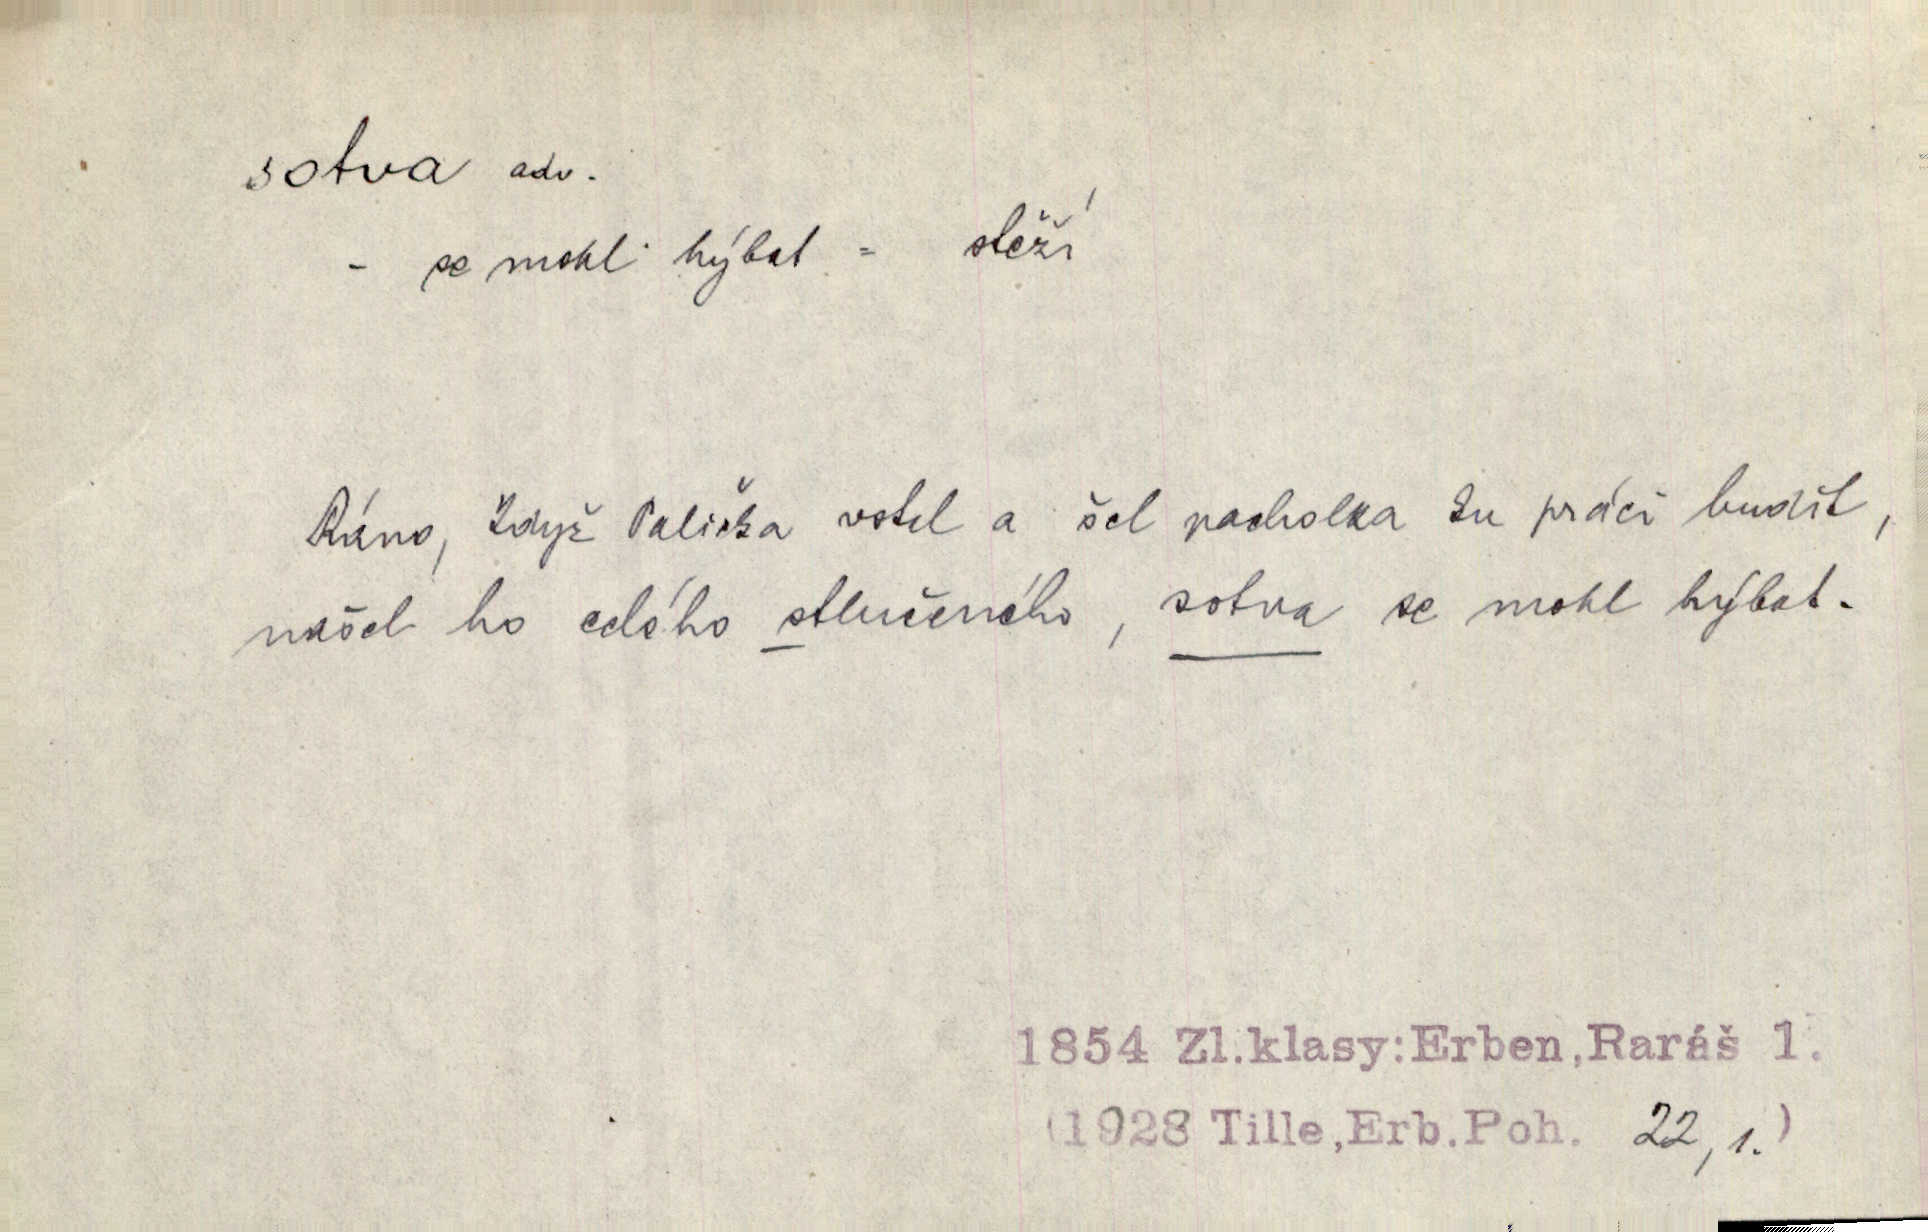 sotva adv.
- se mohl hýbat = stěží
Ráno, když Palička vstal a šel pacholka ku práci budit,
našel ho celého stlučeného, sotva se mohl hýbat.
1854 Zl.klasy:Erben,Raráš 1.
(1928 Tille,Erb.Poh. 22,1.)